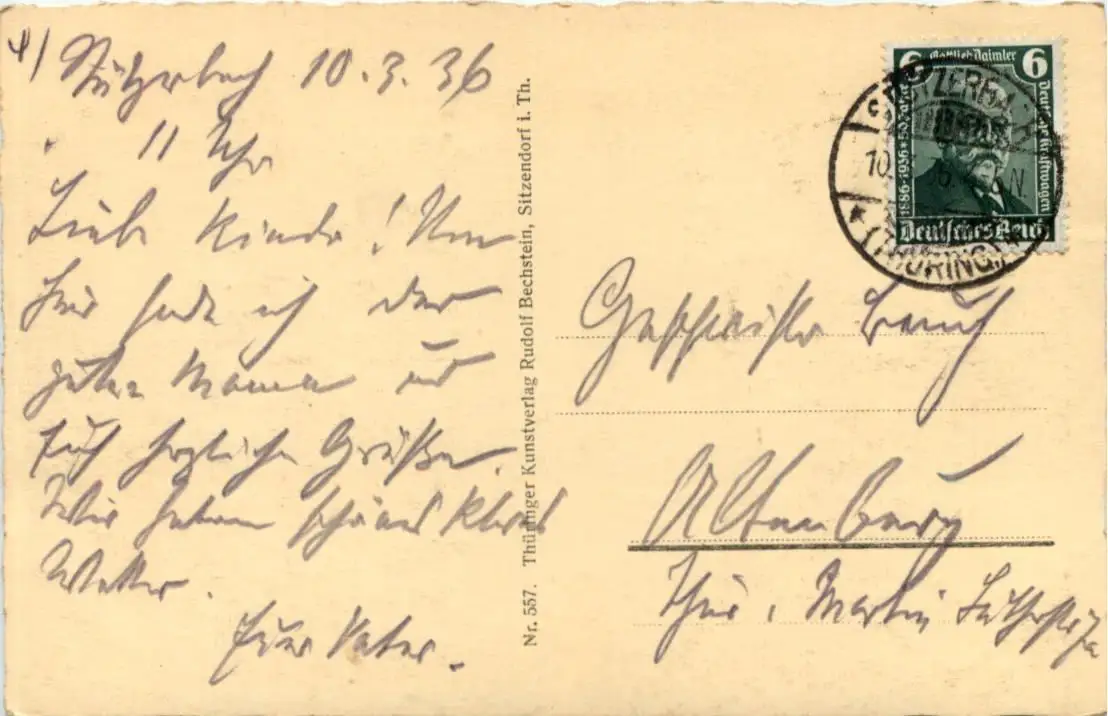 4) Stützerbach 10.3.36
11 Uhr
Liebe Kinder! Von
hier sende ich der
guten Mama und
Euch herzliche Grüße.
Wir haben schönes klares
Wetter.
Euer Vater.
Nr. 557. Thüringer Kunstverlag Rudolf Bechstein, Sitzendorf i. Th.
6 Gottlieb Daimler 6
1886-1936 * 50 Jahre
Deutscher Kraftwagen
Deutsches Reich
STÜTZERBACH
10. 36. N
* (THÜRING.)
Geschwister
Altenburg
Thür. Martin Lutherstr.